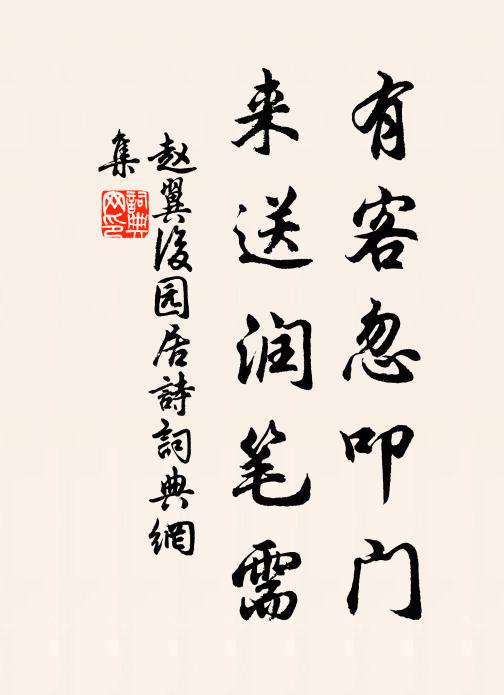 有客忽叩门
来送润笔需
赵翼后园居詩詞典網
集
詞典
网印